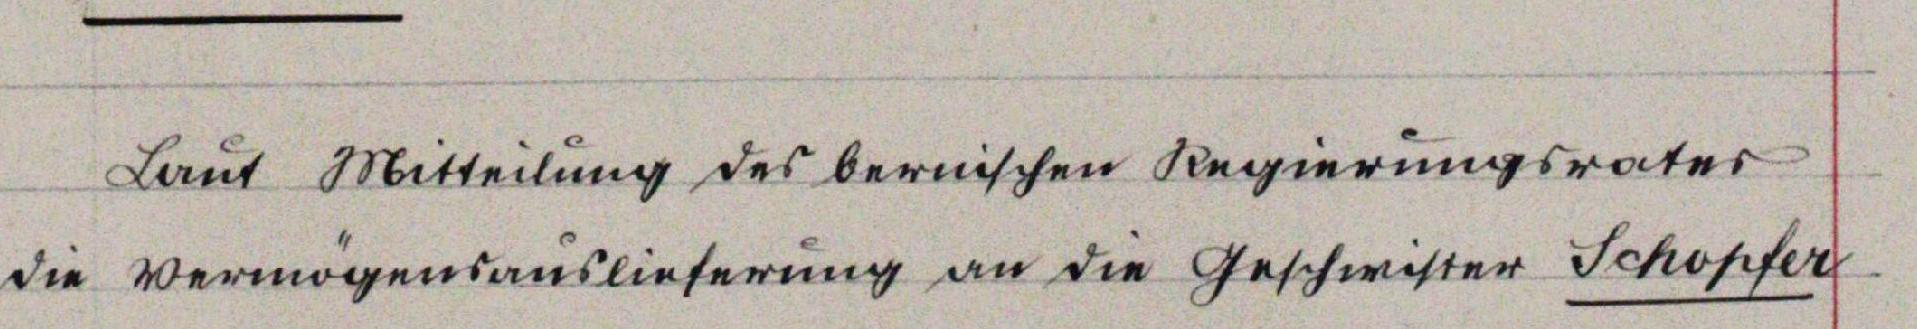 Laut Mitteilung des bernischen Regierungsrates
die Vermögensauslieferung an die Geschwister Schopfer